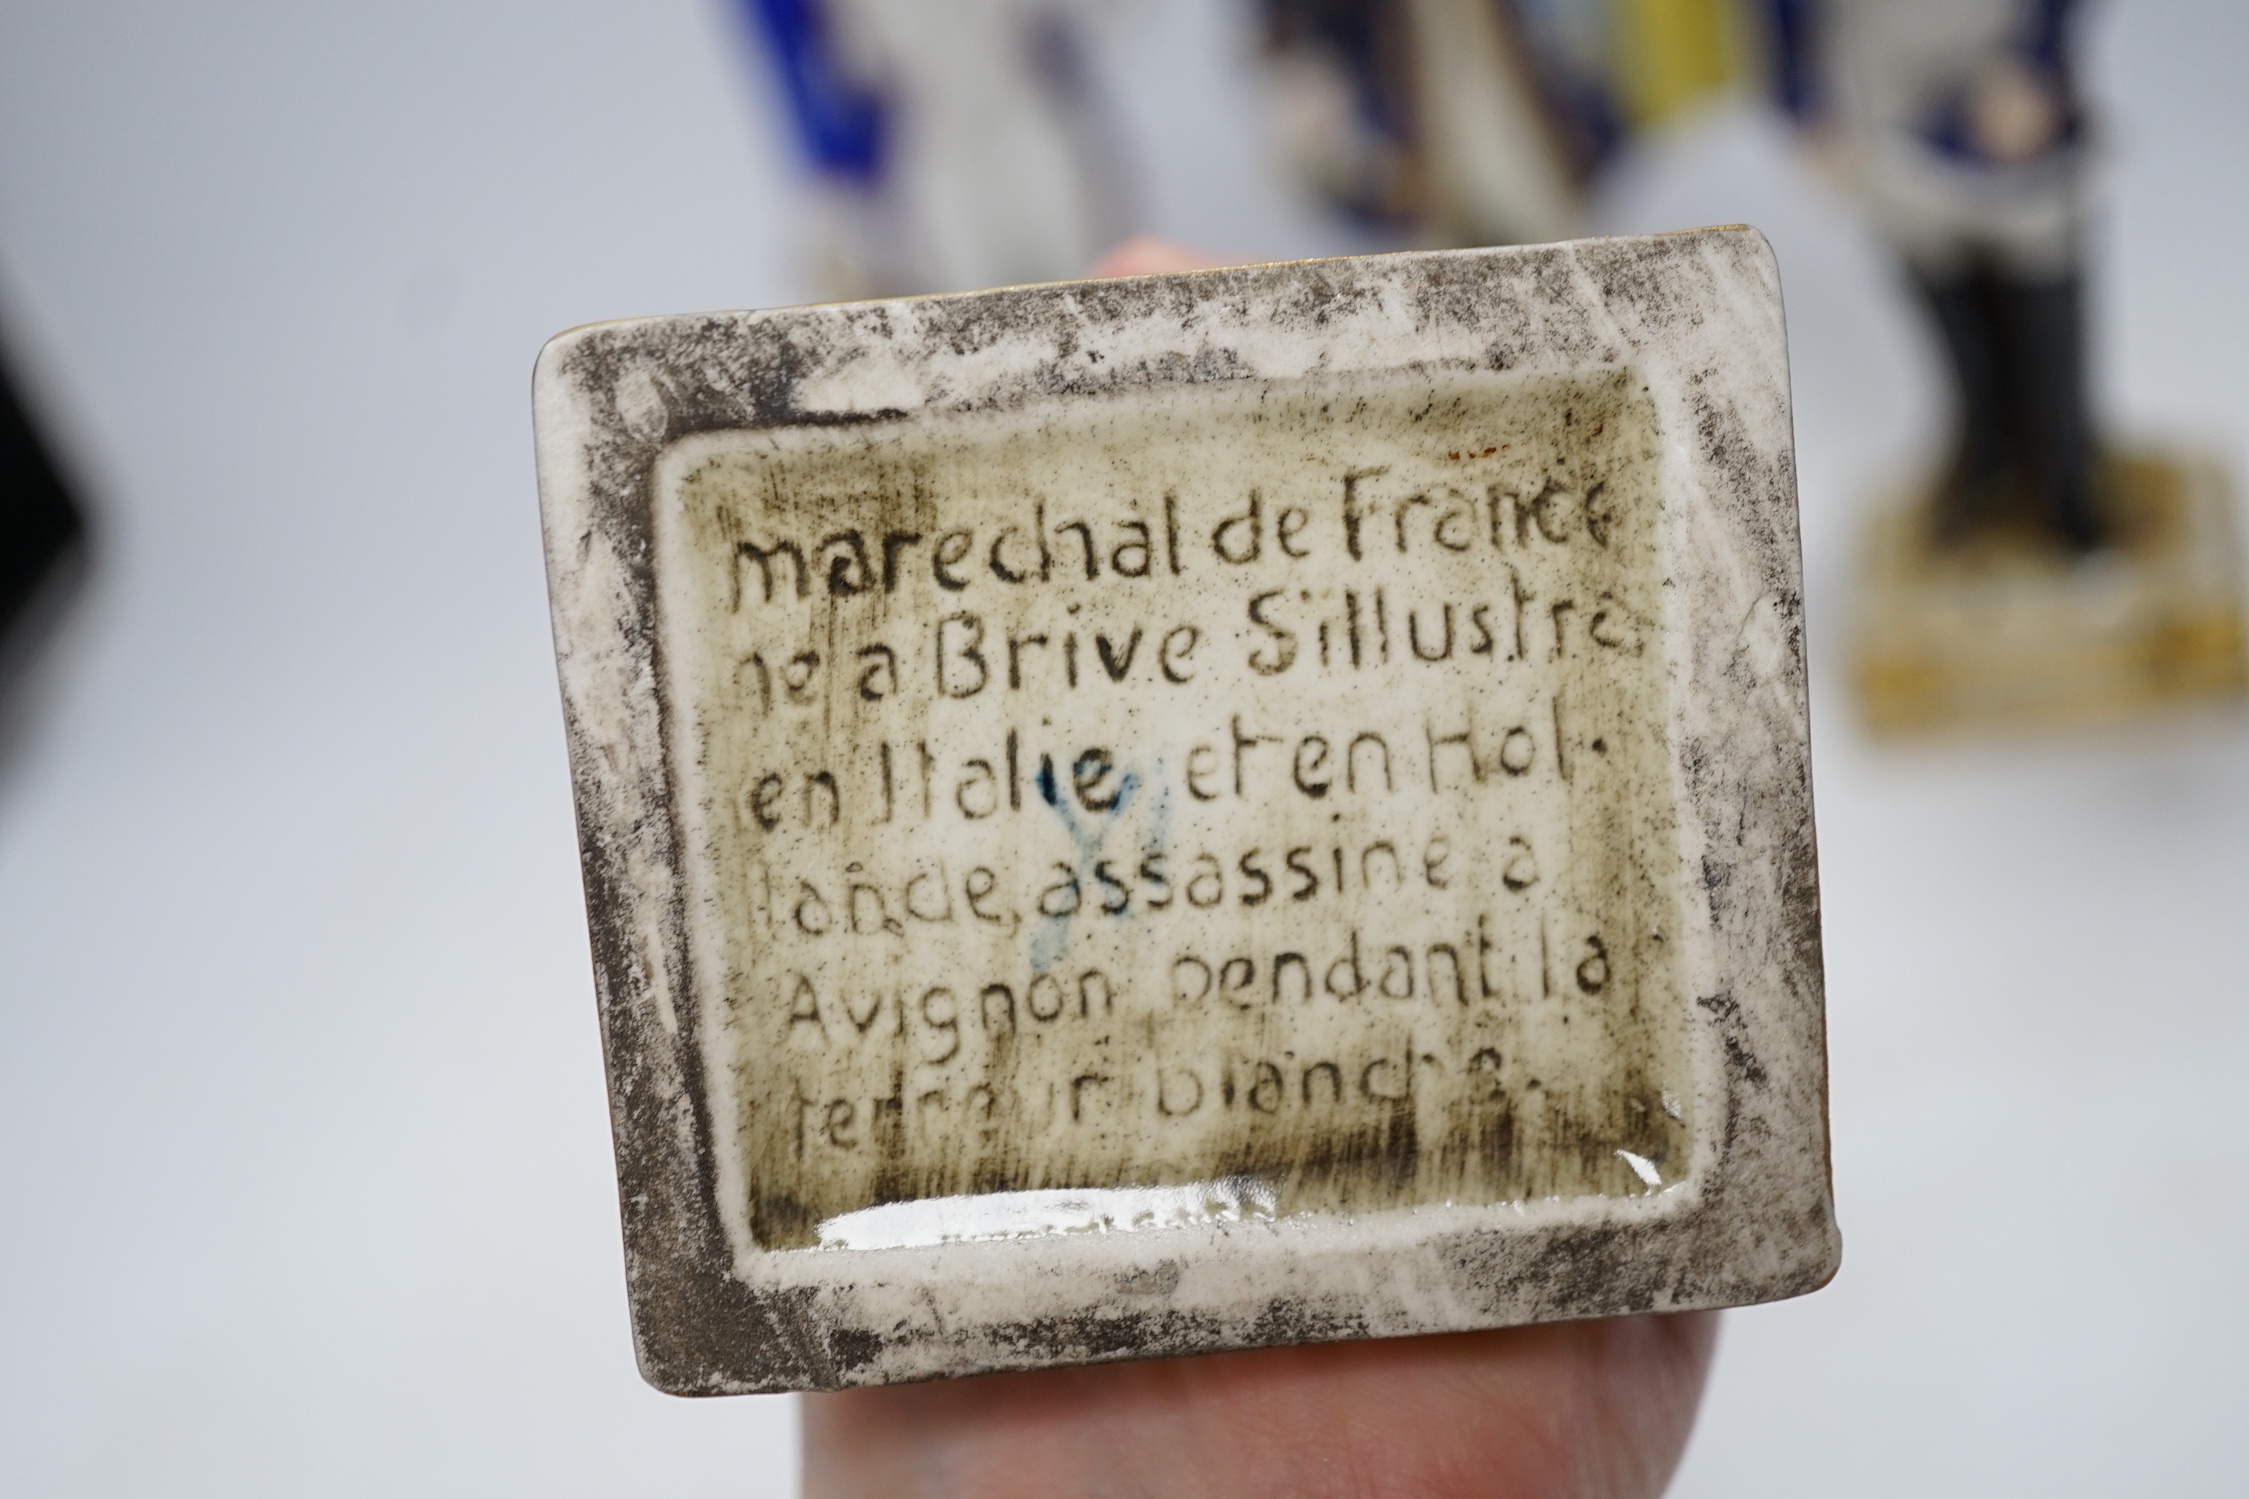 marechal de France
ne a Brive S'illustre
en Italie et en Hol-
lande, assassine a
Avignon pendant la
terreur blanche.